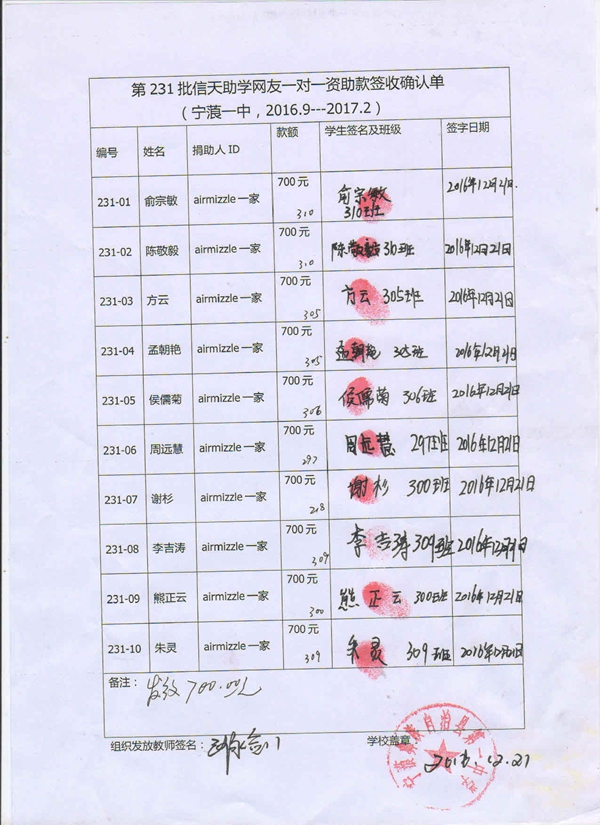 第 231 批信天助学网友一对一资助款签收确认单
（宁蒗一中，2016.9---2017.2）
编号 姓名 捐助人 ID 款额 学生签名及班级 签字日期
231-01 俞宗敏 airmizzle 一家 700 元 310 俞宗敏 2016年12月21日
310班
231-02 陈敬毅 airmizzle 一家 700 元 310 陈敬毅 310班 2016年12月21日
231-03 方云 airmizzle 一家 700 元 305 方云 305班 2016年12月21日
231-04 孟朝艳 airmizzle 一家 700 元 305 孟朝艳 305班 2016年12月21日
231-05 侯儒菊 airmizzle 一家 700 元 306 侯儒菊 306班 2016年12月21日
231-06 周远慧 airmizzle 一家 700 元 297 周远慧 297班 2016年12月21日
231-07 谢杉 airmizzle 一家 700 元 谢杉 300班 2016年12月21日
231-08 李吉涛 airmizzle 一家 700 元 309 李吉涛 309班 2016年12月21日
231-09 熊正云 airmizzle 一家 700 元 300 熊正云 300班 2016年12月21日
231-10 朱灵 airmizzle 一家 700 元 309 朱灵 309班 2016年12月21日
备注： 发放 700.00元
组织发放教师签名： 学校盖章
2016.12.21